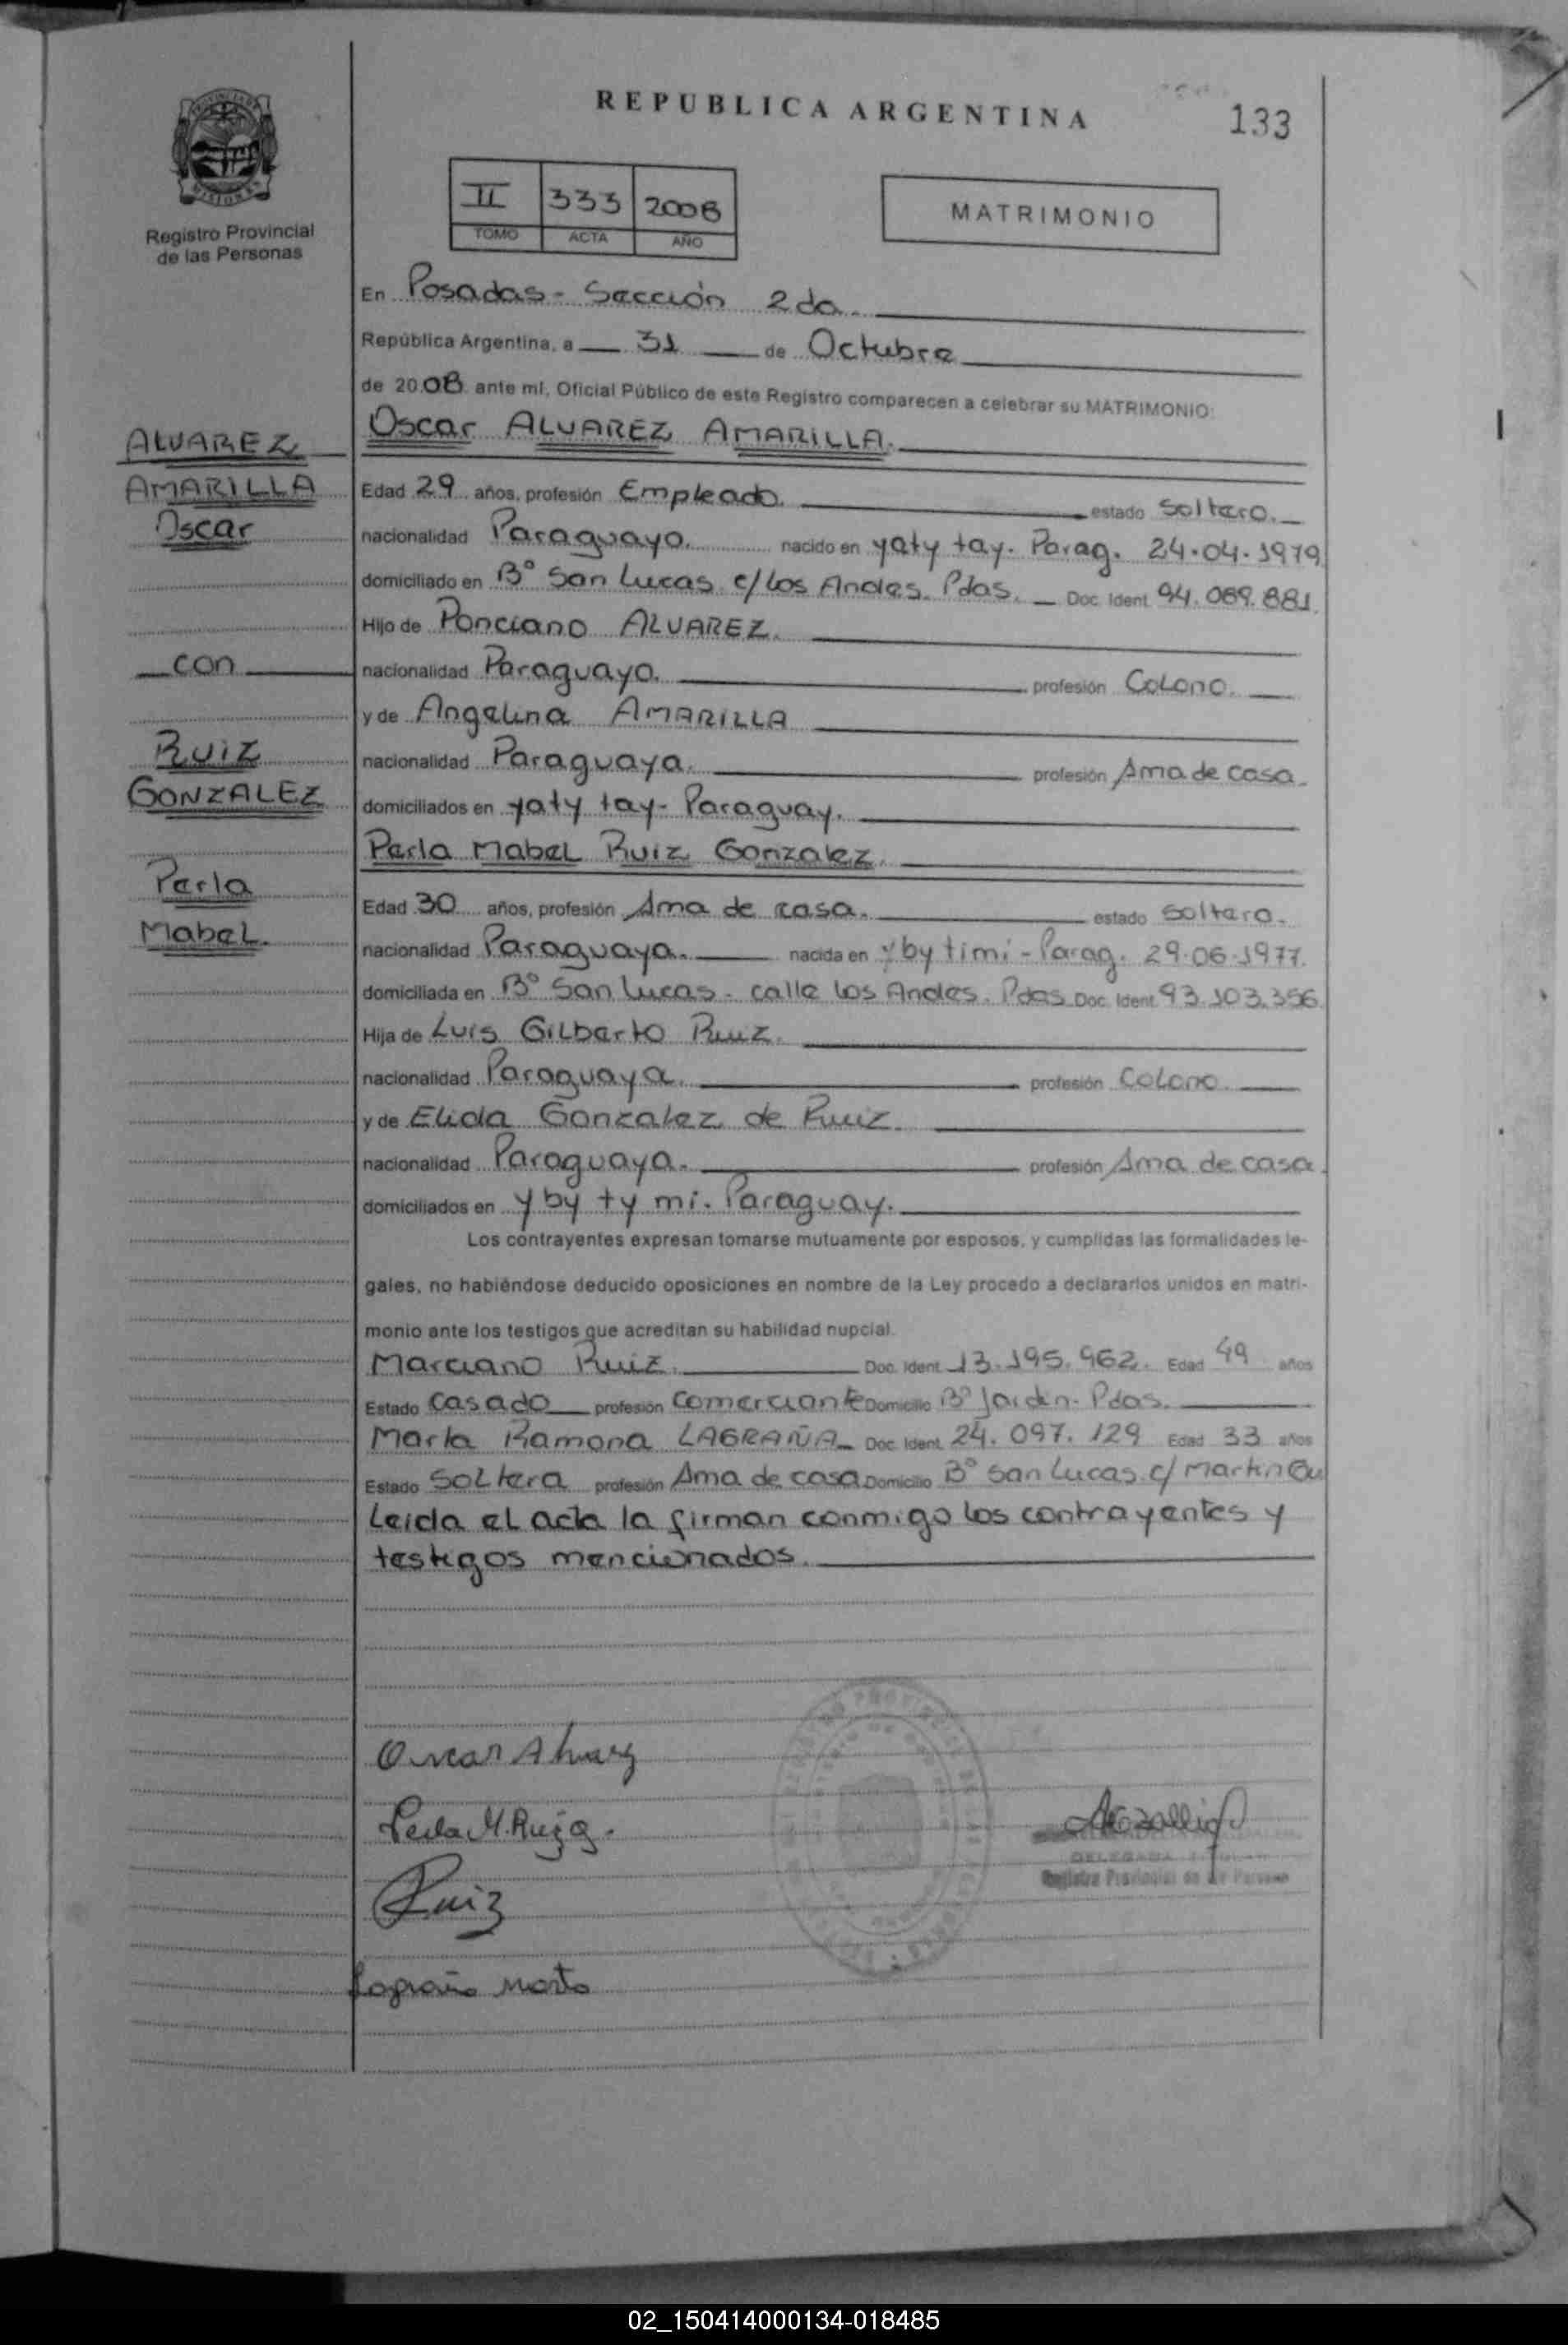 REPUBLICA ARGENTINA
133
Registro Provincial
de las Personas
II 333 2008
TOMO ACTA AÑO
MATRIMONIO
En Posadas - Sección 2da.
República Argentina, a 31 de Octubre
de 2008 ante mí, Oficial Público de este Registro comparecen a celebrar su MATRIMONIO:
ALVAREZ
AMARILLA
Oscar
con
RUIZ
GONZALEZ
Perla
Mabel.
Oscar ALVAREZ AMARILLA.
Edad 29 años, profesión Empleado. estado soltero.
nacionalidad Paraguayo. nacido en yaty tay. Parag. 24.04.1979
domiciliado en B° San Lucas c/Los Andes. Pdas. Doc. Ident. 94.089.881.
Hijo de Ponciano ALVAREZ.
nacionalidad Paraguayo. profesión Colono.
y de Angelina AMARILLA
nacionalidad Paraguaya. profesión Ama de casa.
domiciliados en yaty tay - Paraguay.
Perla Mabel Ruiz Gonzalez.
Edad 30 años, profesión Ama de casa. estado soltera.
nacionalidad Paraguaya. nacida en yby timi - Parag. 29.06.1977.
domiciliada en B° San Lucas - calle los Andes. Pdas Doc. Ident. 93.103.356
Hija de Luis Gilberto Ruiz.
nacionalidad Paraguaya. profesión Colono.
y de Elida Gonzalez de Ruiz.
nacionalidad Paraguaya. profesión Ama de casa.
domiciliados en yby ty mi. Paraguay.
Los contrayentes expresan tomarse mutuamente por esposos, y cumplidas las formalidades le-
gales, no habiéndose deducido oposiciones en nombre de la Ley procedo a declararlos unidos en matri-
monio ante los testigos que acreditan su habilidad nupcial.
Marciano Ruiz. Doc. Ident. 13.195.962. Edad 49 años
Estado casado profesión comerciante Domicilio B° Jardin. Pdas.
Marta Ramona LAGRAÑA Doc. Ident. 24.097.129 Edad 33 años
Estado soltera profesión Ama de casa Domicilio B° San Lucas c/ Martin Gu
Leida el acta la firman conmigo los contrayentes y
testigos mencionados.
Oscar Alvarez
Perla M. Ruiz g.
Ruiz
Lagraña Marta
DELEGADA
Registro Provincial de las Personas
02_150414000134-018485